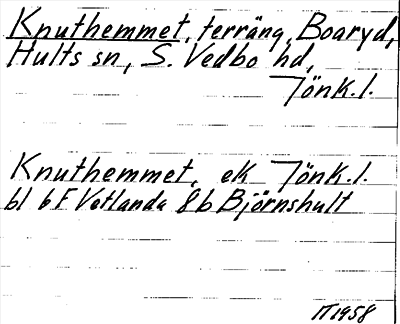 Knuthemmet, terräng, Boaryd,
Hults sn, S. Vedbo hd,
Jönk.l.
Knuthemmet, ek Jönk.l.
bl 6F Vetlanda 8b Björnshult
IT 1958